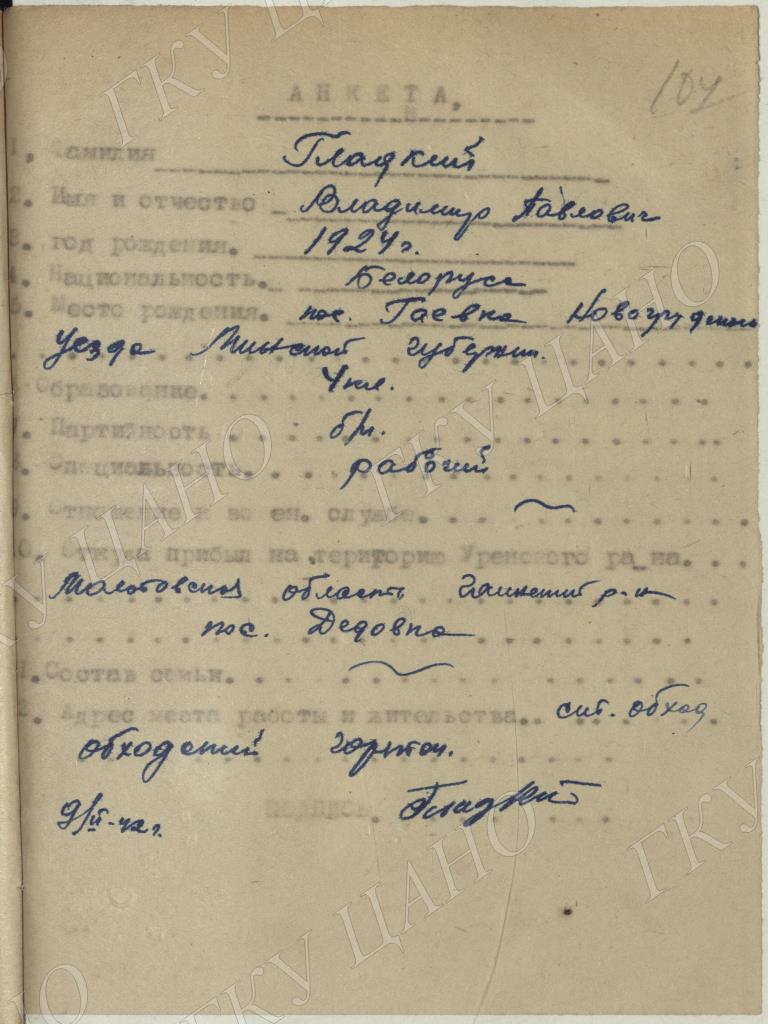 107
АНКЕТА.
1. Фамилия Гладкий
2. Имя и отчество Владимир Павлович
3. год рождения. 1924 г.
4. Национальность. Белорус
5. Место рождения. пос. Гаевка Новогрудского
уезда Минской губернии.
Образование. 4 кл.
7. Партийность б/п.
8. Специальность. рабочий
9. Отношение к воен. службе. ~
10. Откуда прибыл на територию Уренского ра_на.
Молотовская область Гаинский р-н
пос. Дедовка
11. Состав семьи. ~
12. Адрес места работы и жительства. обход
обходский
подпись. Гладкий
9/II-42 г.
ГКУ ЦАНО